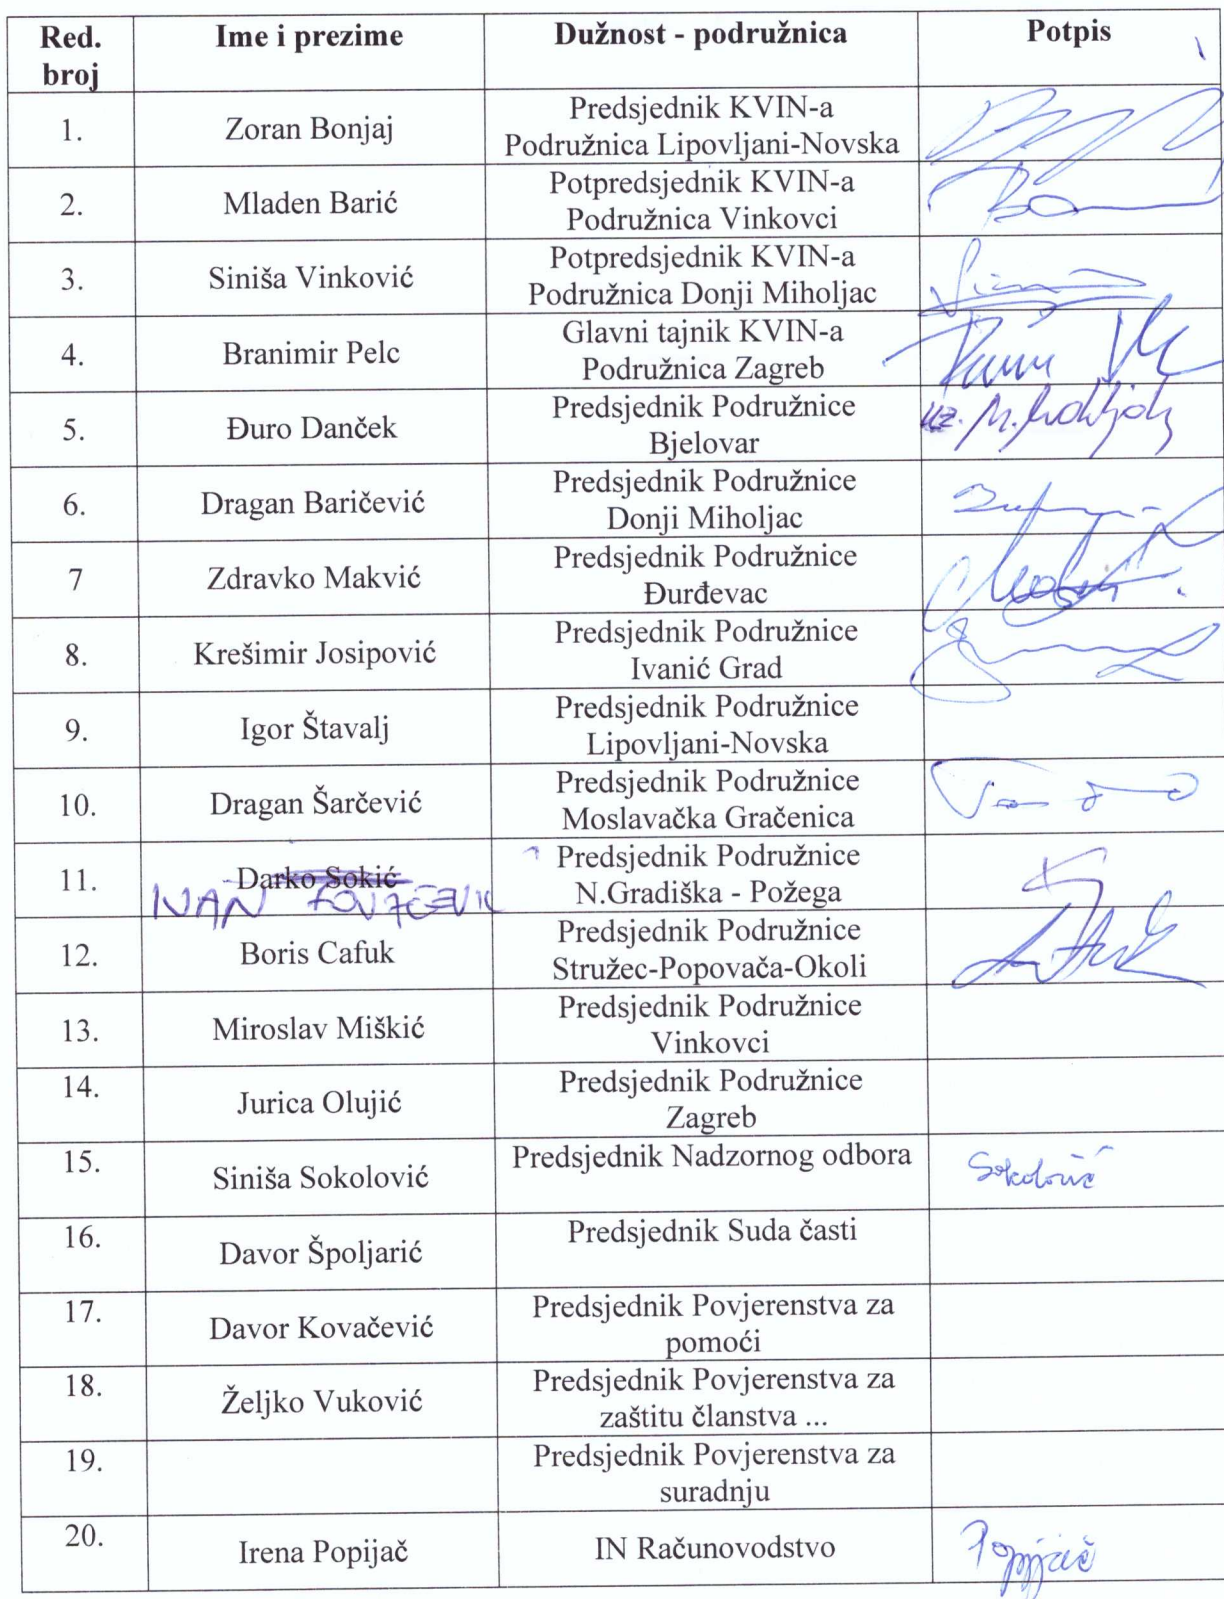 Red. broj Ime i prezime Dužnost - podružnica Potpis
1. Zoran Bonjaj Predsjednik KVIN-a
Podružnica Lipovljani-Novska
2. Mladen Barić Potpredsjednik KVIN-a
Podružnica Vinkovci
3. Siniša Vinković Potpredsjednik KVIN-a
Podružnica Donji Miholjac
4. Branimir Pelc Glavni tajnik KVIN-a
Podružnica Zagreb
5. Đuro Danček Predsjednik Podružnice
Bjelovar
6. Dragan Baričević Predsjednik Podružnice
Donji Miholjac
7 Zdravko Makvić Predsjednik Podružnice
Đurđevac
8. Krešimir Josipović Predsjednik Podružnice
Ivanić Grad
9. Igor Štavalj Predsjednik Podružnice
Lipovljani-Novska
10. Dragan Šarčević Predsjednik Podružnice
Moslavačka Gračenica
11. Darko Sokić Predsjednik Podružnice
IVAN N.Gradiška - Požega
12. Boris Cafuk Predsjednik Podružnice
Stružec-Popovača-Okoli
13. Miroslav Miškić Predsjednik Podružnice
Vinkovci
14. Jurica Olujić Predsjednik Podružnice
Zagreb
15. Siniša Sokolović Predsjednik Nadzornog odbora Sokolović
16. Davor Špoljarić Predsjednik Suda časti
17. Davor Kovačević Predsjednik Povjerenstva za
pomoći
18. Željko Vuković Predsjednik Povjerenstva za
zaštitu članstva ...
19. Predsjednik Povjerenstva za
suradnju
20. Irena Popijač IN Računovodstvo Popijač